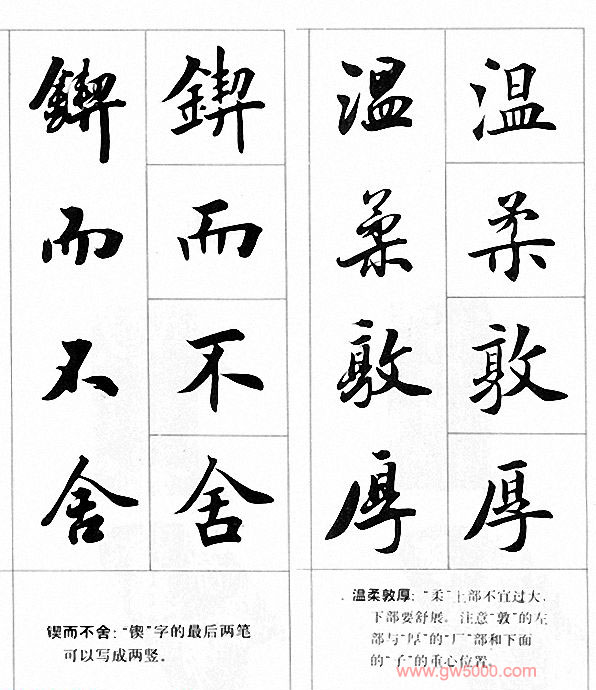 温柔敦厚
温柔敦厚
温柔敦厚：“柔”上部不宜过大，
下部要舒展。注意“敦”的左
部与“厚”的“厂”部和下面
的“子”的重心位置。
鍥而不舍
鍥而不舍
锲而不舍：“锲”字的最后两笔
可以写成两竖。
www.gw5000.com